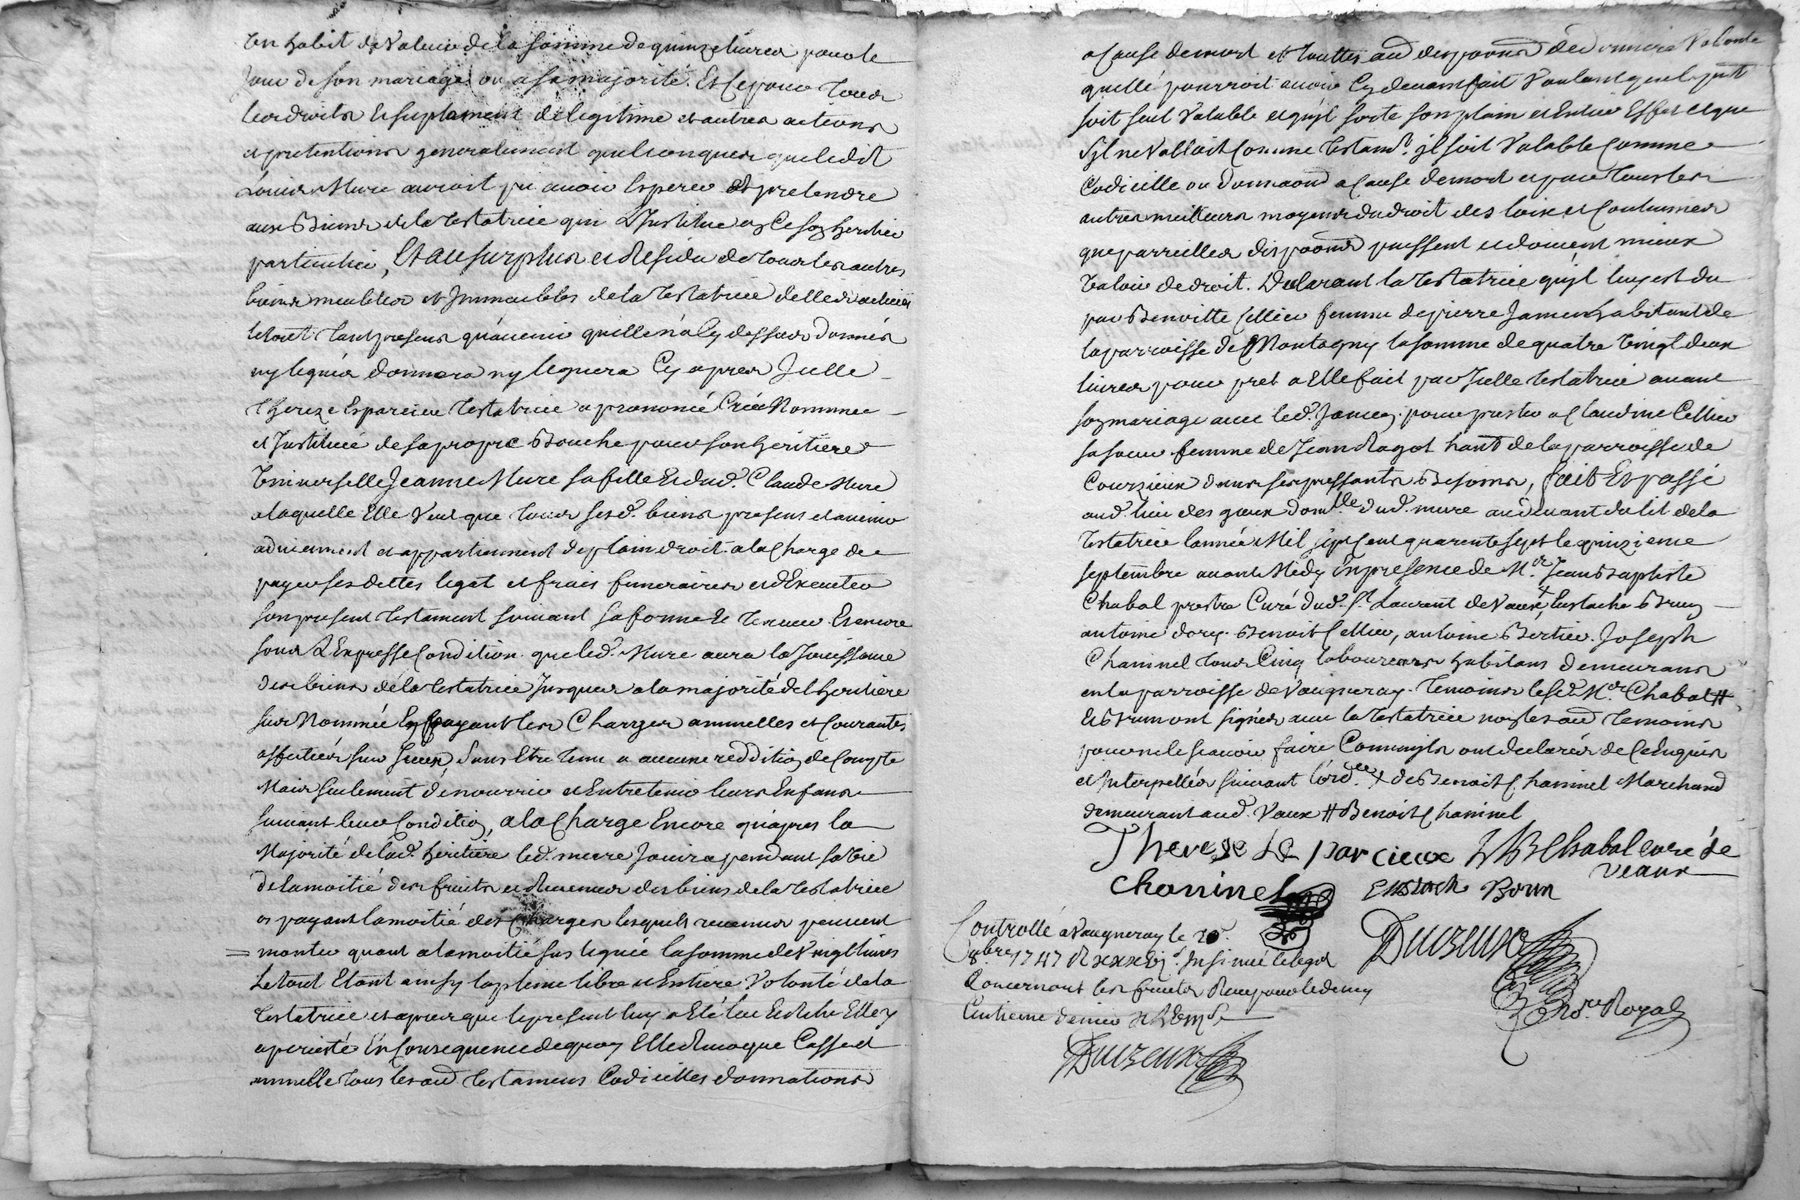 Un habit de valeur de la somme de quinze livres pour le
jour de son mariage ou a sa majorité. Et ce pour tous
les droits et suplement de legitime et autres actions
et pretentions generalement quelconques que ledit
Louis Mure auroit pu avoir esperer et pretendre
aux Biens de la testatrice qui L'Institue en ce son heritier
particulier, Et au surplus et Residu de tous les autres
biens meubles et Immeubles de la testatrice
tant presens qu'avenir quelle n'a cy dessus donnés
ny legués donnera ny leguera Cy apres
testatrice a prononcé Créé Nommée
et Instituée de sa propre Bouche pour son heritiere
Universelle Jeanne Mure sa fille Et dud. Claude Mure
a laquelle Elle veut que tous sesd. biens presens et avenir
adviennent et appartiennent de plain droit. a la charge de
payer ses dettes legat et frais funeraires et d'Executer
son present testament suivant sa forme et teneur. Et encore
sous L'Expresse Condition que led. Mure aura la Jouissance
des biens de la testatrice Jusques a la majorité de l'heritiere
sus Nommée En payant les Charges annuelles et courantes
affectées sur Iceux Sans Etre tenu a aucune reddition de Compte
Mais seulement de nourrir et Entretenir leurs Enfans
suivant leur Condition, a la Charge Encore qu'apres la
Majorité de lad. heritiere led. mure Jouira pendant sa vie
de la moitié des fruits et Revenus des biens de la testatrice
en payant la moitié des Charges lesquels revenus peuvent
monter quant a la moitié sus leguée la somme de vingt livres
Le tout Etant ainsy la pleine libre et Entiere Volonté de la
testatrice et apres que le present luy a Eté leu Et relu Elle y
a persisté En Consequence de quoy Elle Revoque Casse et
annulle tous les aud. testamens Codicilles donnations
a Cause de mort et touttes aud. dispoons de derniere Volonté
quelle pourroit avoir Cy devant fait Voulant que le pnt
soit seul Valable et qu'il sorte son plain et Entier Effet et que
s'il ne Valloit Comme testamt. il soit Valable Comme
Codicille ou donnaond a Cause de mort et pour tous les
autres meilleurs moyens du droit des loix et Coutumes
que parreilles dispoons puissent et doivent mieux
Valoir de droit. Declarant la testatrice qu'il luy est du
par Benoitte Cellier femme de pierre Jamen habitant de
la parroisse de Montagny la somme de quatre Vingt deux
livres pour pret a Elle fait par Icelle testatrice avant
son mariage avec led. Jamen. pour prester a Claudine Cellier
sa soeur femme de Jean Ragot hant de la parroisse de
Courzieux dans ses pressants Besoins, fait Et passé
aud. lieu des domlle dud. mure au devant du lit de la
testatrice l'année Mil sept cent quarante sept le quinzieme
septembre avant Midy En presence de Mr. Jean Baptiste
Chabal prestre Curé dud. St. Laurent de Vaux, + Eustache Brun
antoine dorey. Benoit Cellier, antoine Bertier. Joseph
Chaninel tous Cinq laboureurs habitans demeurans
en la parroisse de Vaugneray. temoins lesd. Mr. Chabal #
et Brun ont signés avec la testatrice non les aud. temoins
pour ne le scavoir faire Comme ils ont declarés de Ce Enquis
et Interpellés suivant l'ordce. + de Benoit Chaninel Marchand
demeurant aud. Vaux # Benoit Chaninel
Therese Le parcieux JB Chabal curé de
Vaux
Chaninel Eustache Brun
Controllé a Vaugneray le 20e.
8bre 1747 Insinué le legs
Concernant les fruits Reçu pour le demy
Centieme denier
Duverne
Nore. Royal
Duverne